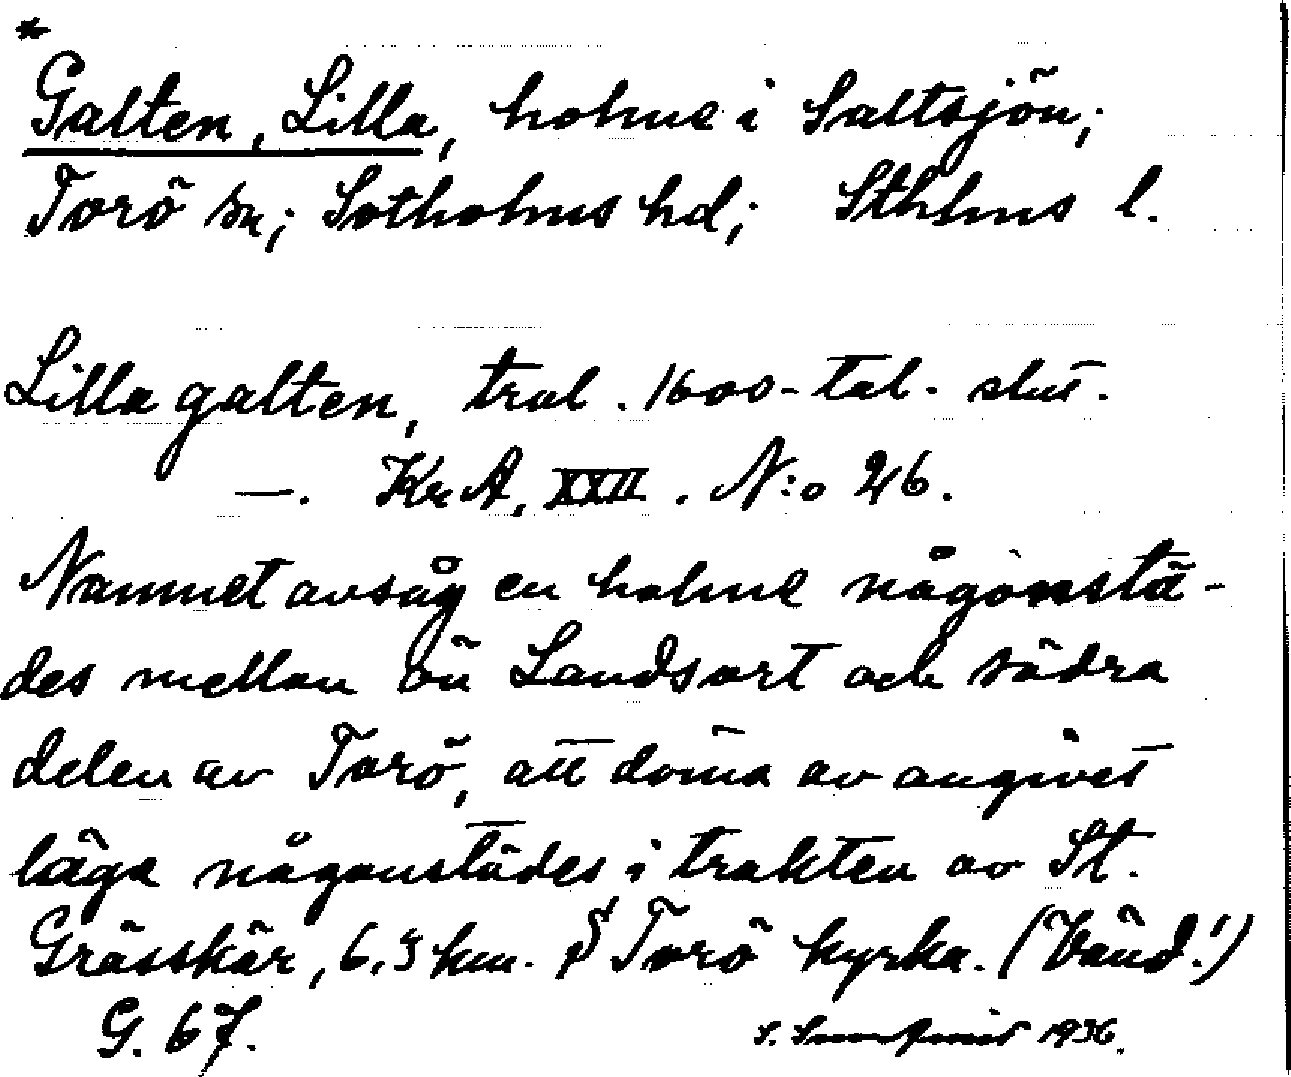 *
Galten, Lilla, holme i Saltsjön;
Torö sn; Sotholms hd; Sthlms l.
Lilla galten, tral. 1600-tal. slut.
—. KrA, XXII. N:o 26.
Namnet avsåg en holme någonstä-
des mellan ön Landsort och södra
delen av Torö, att döma av angivet
läge någonstädes i trakten av St.
Grässkär, 6,5 km. S Torö kyrka. (Vänd!)
G. 67.
1936.